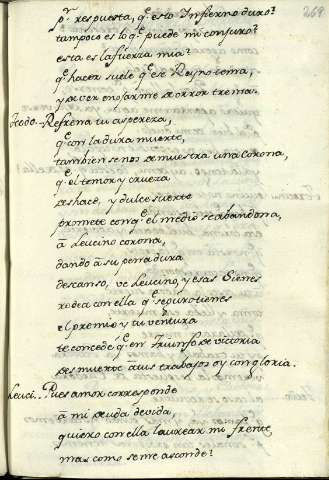 269.
pr. respuesta, q.e esto Infierno duro?
tampoco es lo q.e puede mi conjuro?
esta es la fuerza mia?
q.e hacer suele q.e ese Reyno tema,
y a ver enojarme de orror trema.
Teodo.. Refrena tu aspereza,
q.e con la dura muerte,
tambien se nos demuestra una Corona,
q.e el temor y crueza
deshace, y dulce suerte
promete con q.e el medio se abandona,
â Leucino corona,
dando â su pena dura
descanso, ve Leucino, y esas Sienes
rodea con ella q.e seguro tienes
el premio y tu ventura
te concedo q.e en Triunfo de victoria
des muerte a tus trabajos oy con gloria.
Leuci.. Pues amor corresponde
â mi deuda devida,
quiero con ella laurear mi frente
mas como se me asconde?